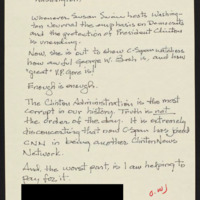 Whenever Susan Swain hosts Washing-
ton Journal the emphasis on Democrats
and the protection of President Clinton
is unending.
Now, she is out to show C-Span watchers
how awful George W. Bush is, and how
"great" V.P. Gore is!
Enough is enough.
The Clinton Administration is the most
corrupt in our history. Truth is not
the order of the day. It is extremely
disconcerting that now C-Span has joined
CNN in being another Clinton News
Network.
And, the worst part, is I am helping to
pay for it.